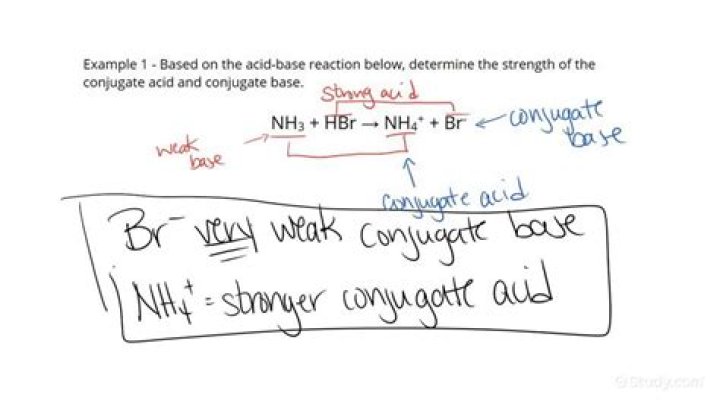 Example 1 - Based on the acid-base reaction below, determine the strength of the
conjugate acid and conjugate base.
strong acid
NH₃ + HBr → NH₄⁺ + Br⁻
conjugate
base
weak
base
conjugate acid
Br⁻ very weak conjugate base
NH₄⁺ = stronger conjugate acid
Study.com